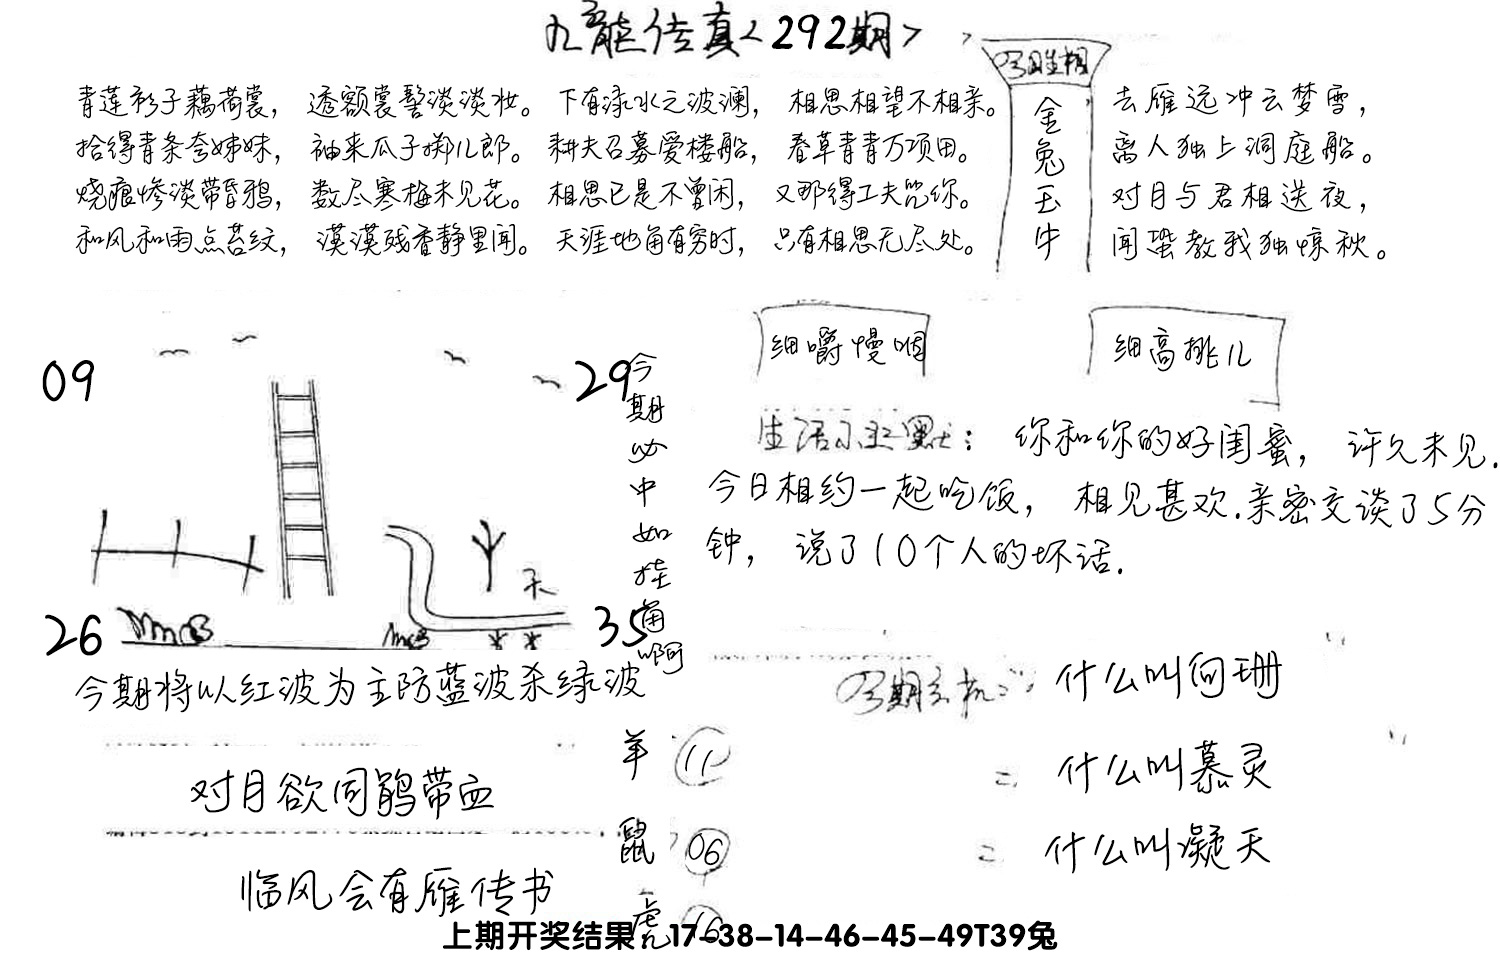 九龍传真<292期>
青莲衫子藕荷裳, 透额裳髻淡淡妆。 下有渌水之波澜, 相思相望不相亲。
拾得青条夸姊妹, 袖来瓜子掷儿郎。 耕夫召募爱楼船, 春草青青万项田。
烧痕惨淡带昏鸦, 数尽寒梅未见花。 相思已是不曾闲, 又那得工夫咒你。
和风和雨点苔纹, 漠漠残香静里闻。 天涯地角有穷时, 只有相思无尽处。
金兔玉牛
去雁远冲云梦雪,
离人独上洞庭船。
对月与君相送夜,
闻蛩教我独惊秋。
细嚼慢咽
细高挑儿
09
29
今期必中如在角啊
生活幽默: 你和你的好闺蜜, 许久未见.
今日相约一起吃饭, 相见甚欢.亲密交谈了5分
钟, 说了10个人的坏话.
26
35
今期将以红波为主防蓝波杀绿波
什么叫向珊
什么叫慕灵
什么叫凝天
对月欲同鹃带血
临风会有雁传书
羊 11
鼠 06
虎 16
上期开奖结果:17-38-14-46-45-49T39兔